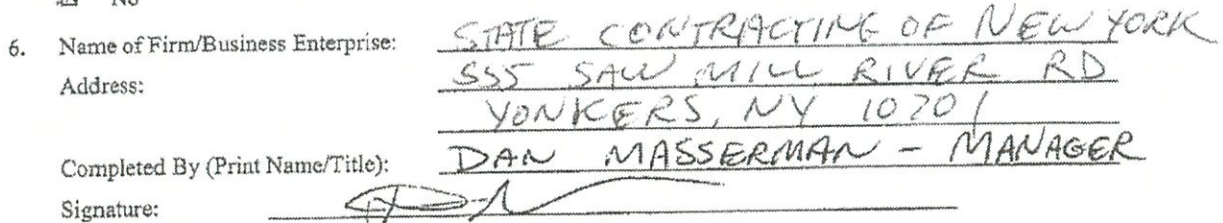 No
6. Name of Firm/Business Enterprise: STATE CONTRACTING OF NEW YORK
Address: 555 SAW MILL RIVER RD
YONKERS, NY 10701
Completed By (Print Name/Title): DAN MASSERMAN - MANAGER
Signature: